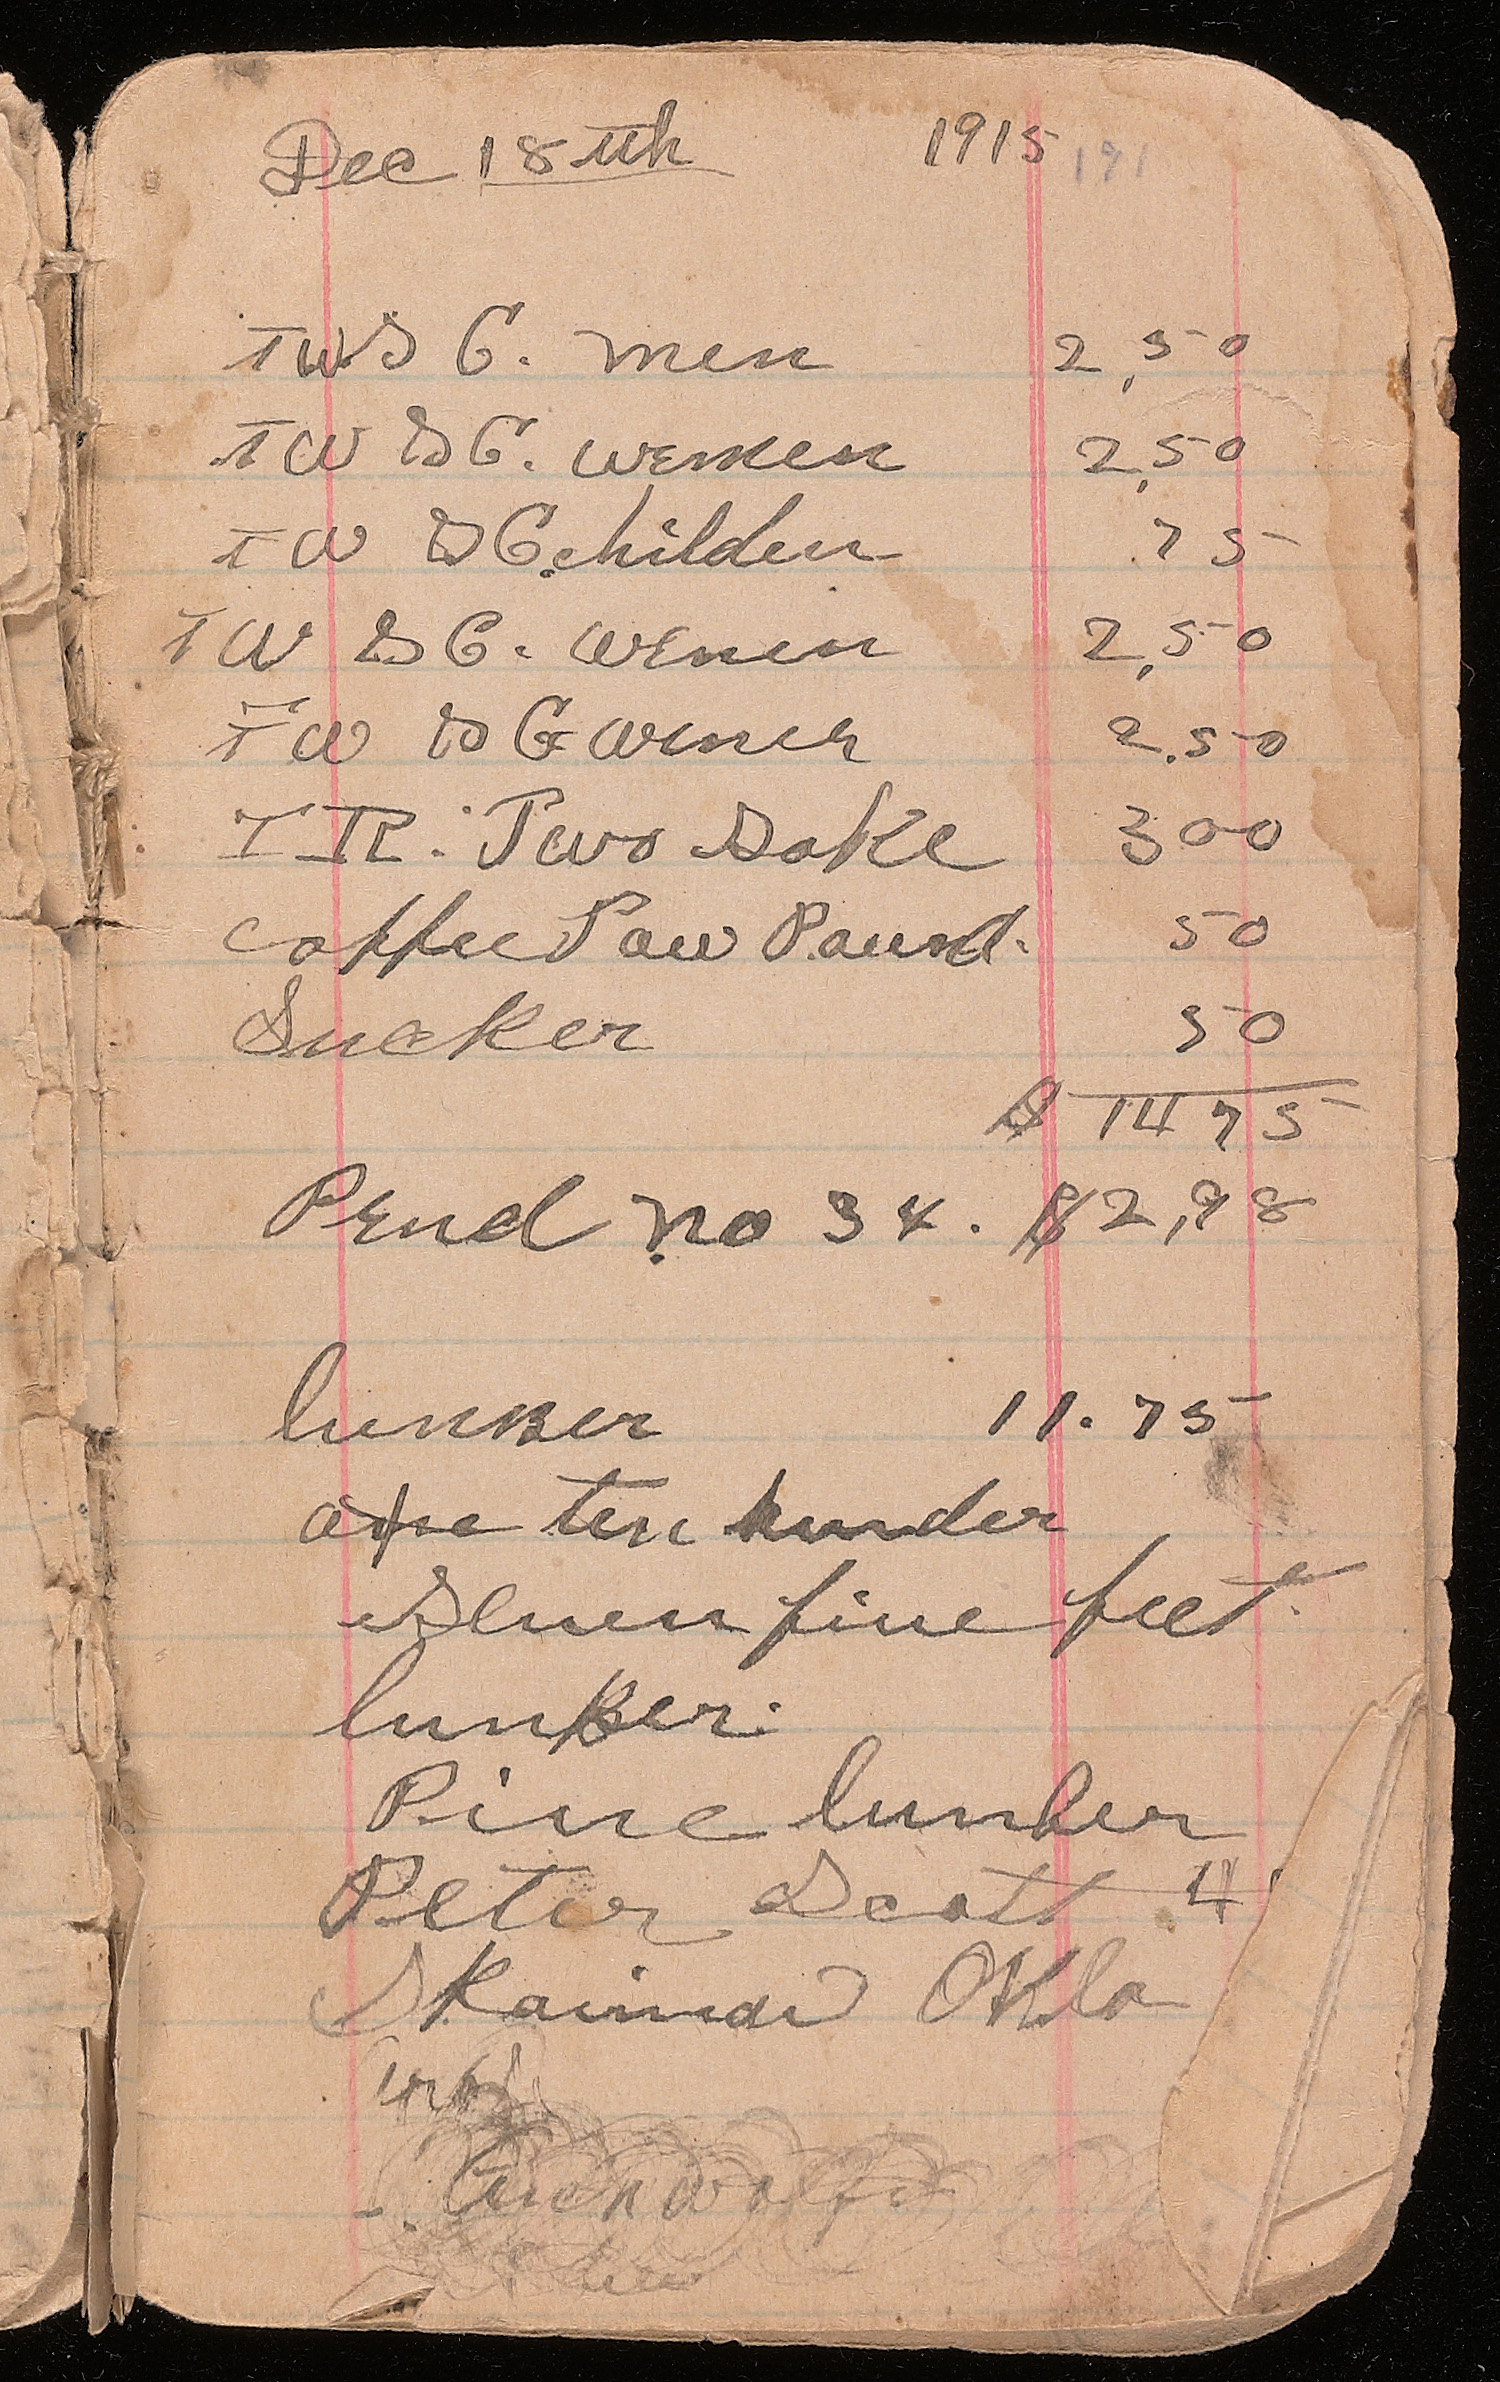 Dec 18 tth 1915 191
TWS G. men 2,50
TW S G. wemen 2,50
TW S G. childen 75
TW S G. wemen 2,50
TW S G wemen 2.50
T R. Two Soke 300
Coffee Pow Pound. 50
Sucker 50
$ 14 75
Pend no 34. $2,98
lunber 11.75
ten hunder
Seuen fine feet.
lunber.
Pine lunber
Peter Scott 4
Skaimar Okla